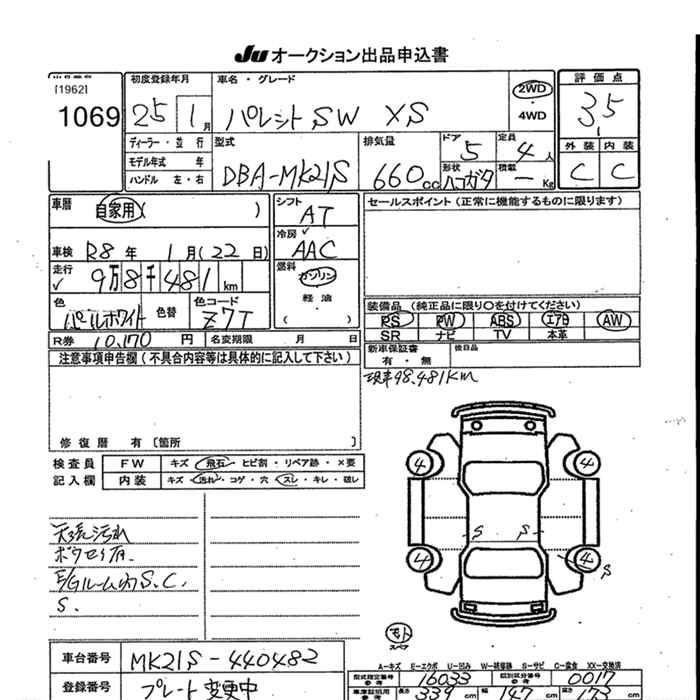 JU オークション出品申込書
[1962]
1069
初度登録年月
25 1月
車名・グレード
パレットSW XS
2WD
・
4WD
評価点
3.5
ディーラー・並行
モデル年式 年
ハンドル 左・右
型式
DBA-MK21S
排気量
660cc
ドア
5
定員
4人
形状
ハコガタ
積載
― Kg
外装 内装
C C
車歴
自家用( )
シフト
AT
冷房
AAC
セールスポイント(正常に機能するものに限ります)
車検 R8年 1月(22日)
走行 9万8千481km
燃料
ガソリン
軽油
( )
色
パールホワイト
色替
色コード
Z7T
装備品(純正品に限り○を付けてください)
PS PW ABS エアB AW
SR ナビ TV 本革
R券 10,170円 名変期限 月 日
新車保証書
有・無
後日品
注意事項申告欄(不具合内容等は具体的に記入して下さい)
現車98,481km
修復歴 有 〔箇所 〕
検査員
記入欄
FW キズ・飛石・ヒビ割・リペア跡・×要
内装 キズ・汚れ・コゲ・穴・スレ・キレ・破レ
4 4
S S
4 4 S
天張汚れ
E/Gルーム内S.C.
S.
スペア
A-キズ E-エクボ U-凹み W-補修跡 S-サビ C-腐食 XX-交換
車台番号 MK21S-440482
登録番号 プレート変更中
型式指定番号 参考 16033
類別区分番号 参考 0017
長さ 339cm 幅 147cm